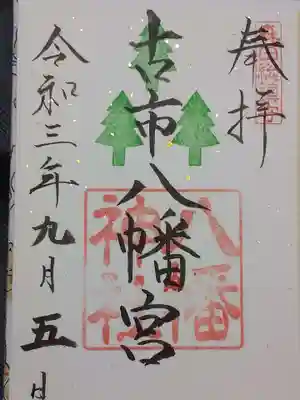 奉拝
古市八幡宮
八幡神社
令和三年九月五日